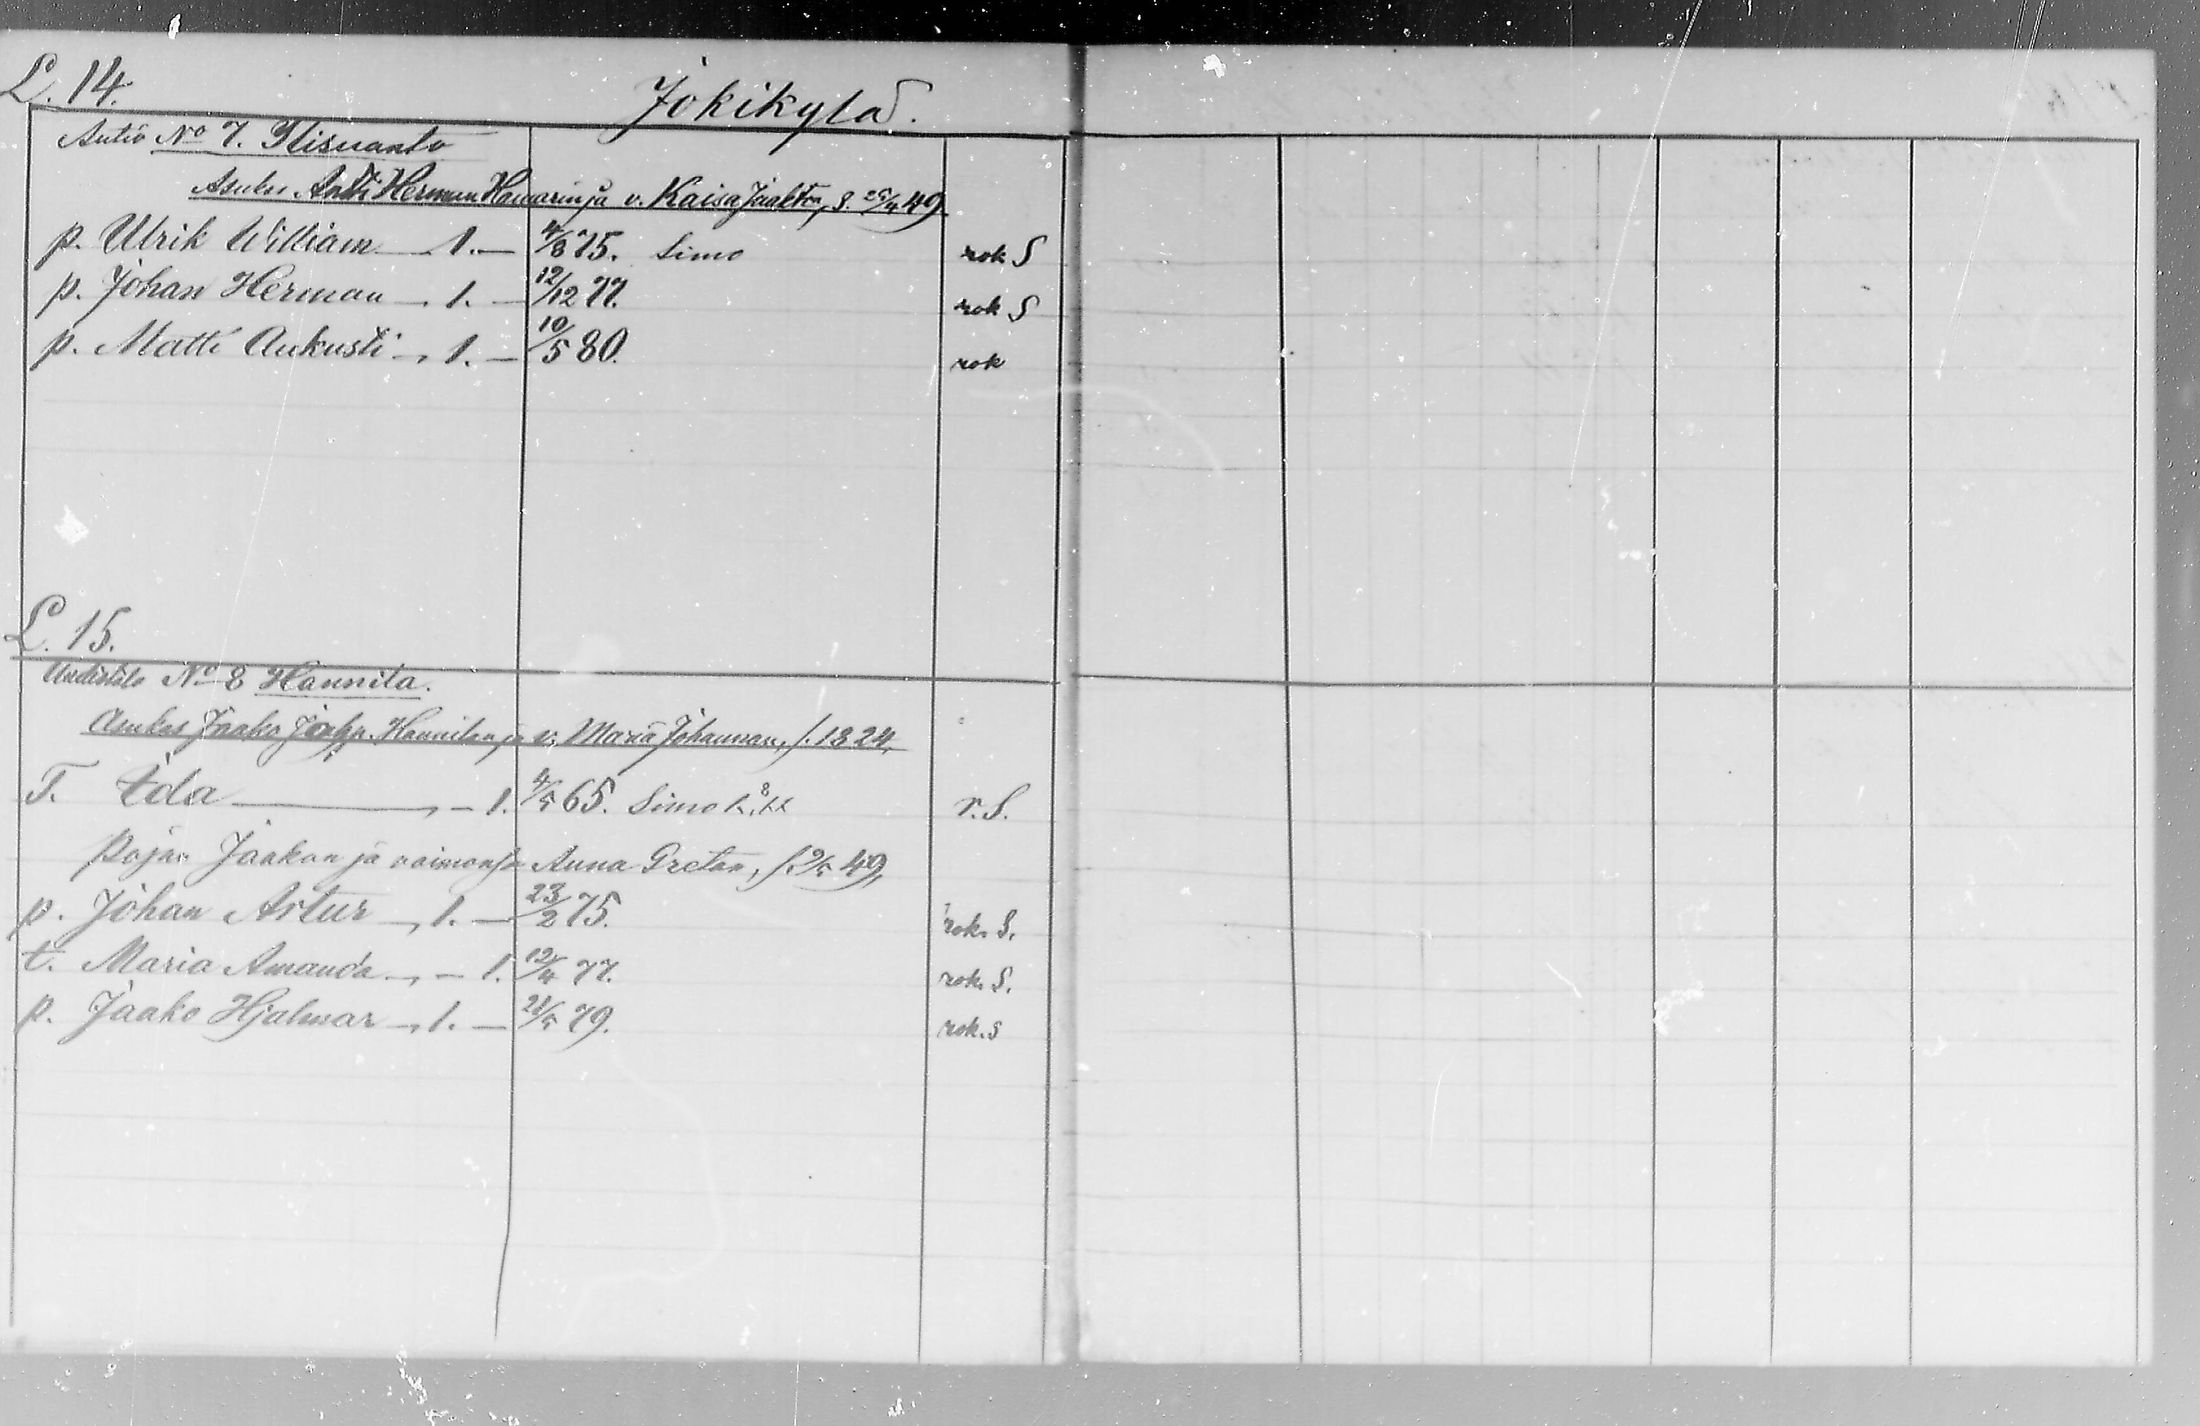 L. 14.
Jokikylä.
Autio No 7.
Asukas Antti Herman Hamarin ja v. Kaisa Jaakton, S. 25/4 49
p. Ulrik William — 1. — 4/8 75. Simo rok S
p. Johan Herman — 1. — 12/12 77. rok S
p. Matti Aukusti — 1. — 10/5 80. rok
L. 15.
Uudistalo No 8 Hannila.
Asukas Jaako Hannilan ja v. Maria Johannan, s. 1824,
T. Ida — 1. 4/5 65. Simo r. S.
Pojan Jaakon ja vaimonsa Anna Gretan, s. 9/5 49,
p. Johan Artur — 1. — 23/2 75. rok. S.
t. Maria Amanda — 1. 12/4 77. rok. S.
p. Jaako Hjalmar — 1. — 21/5 79. rok. s